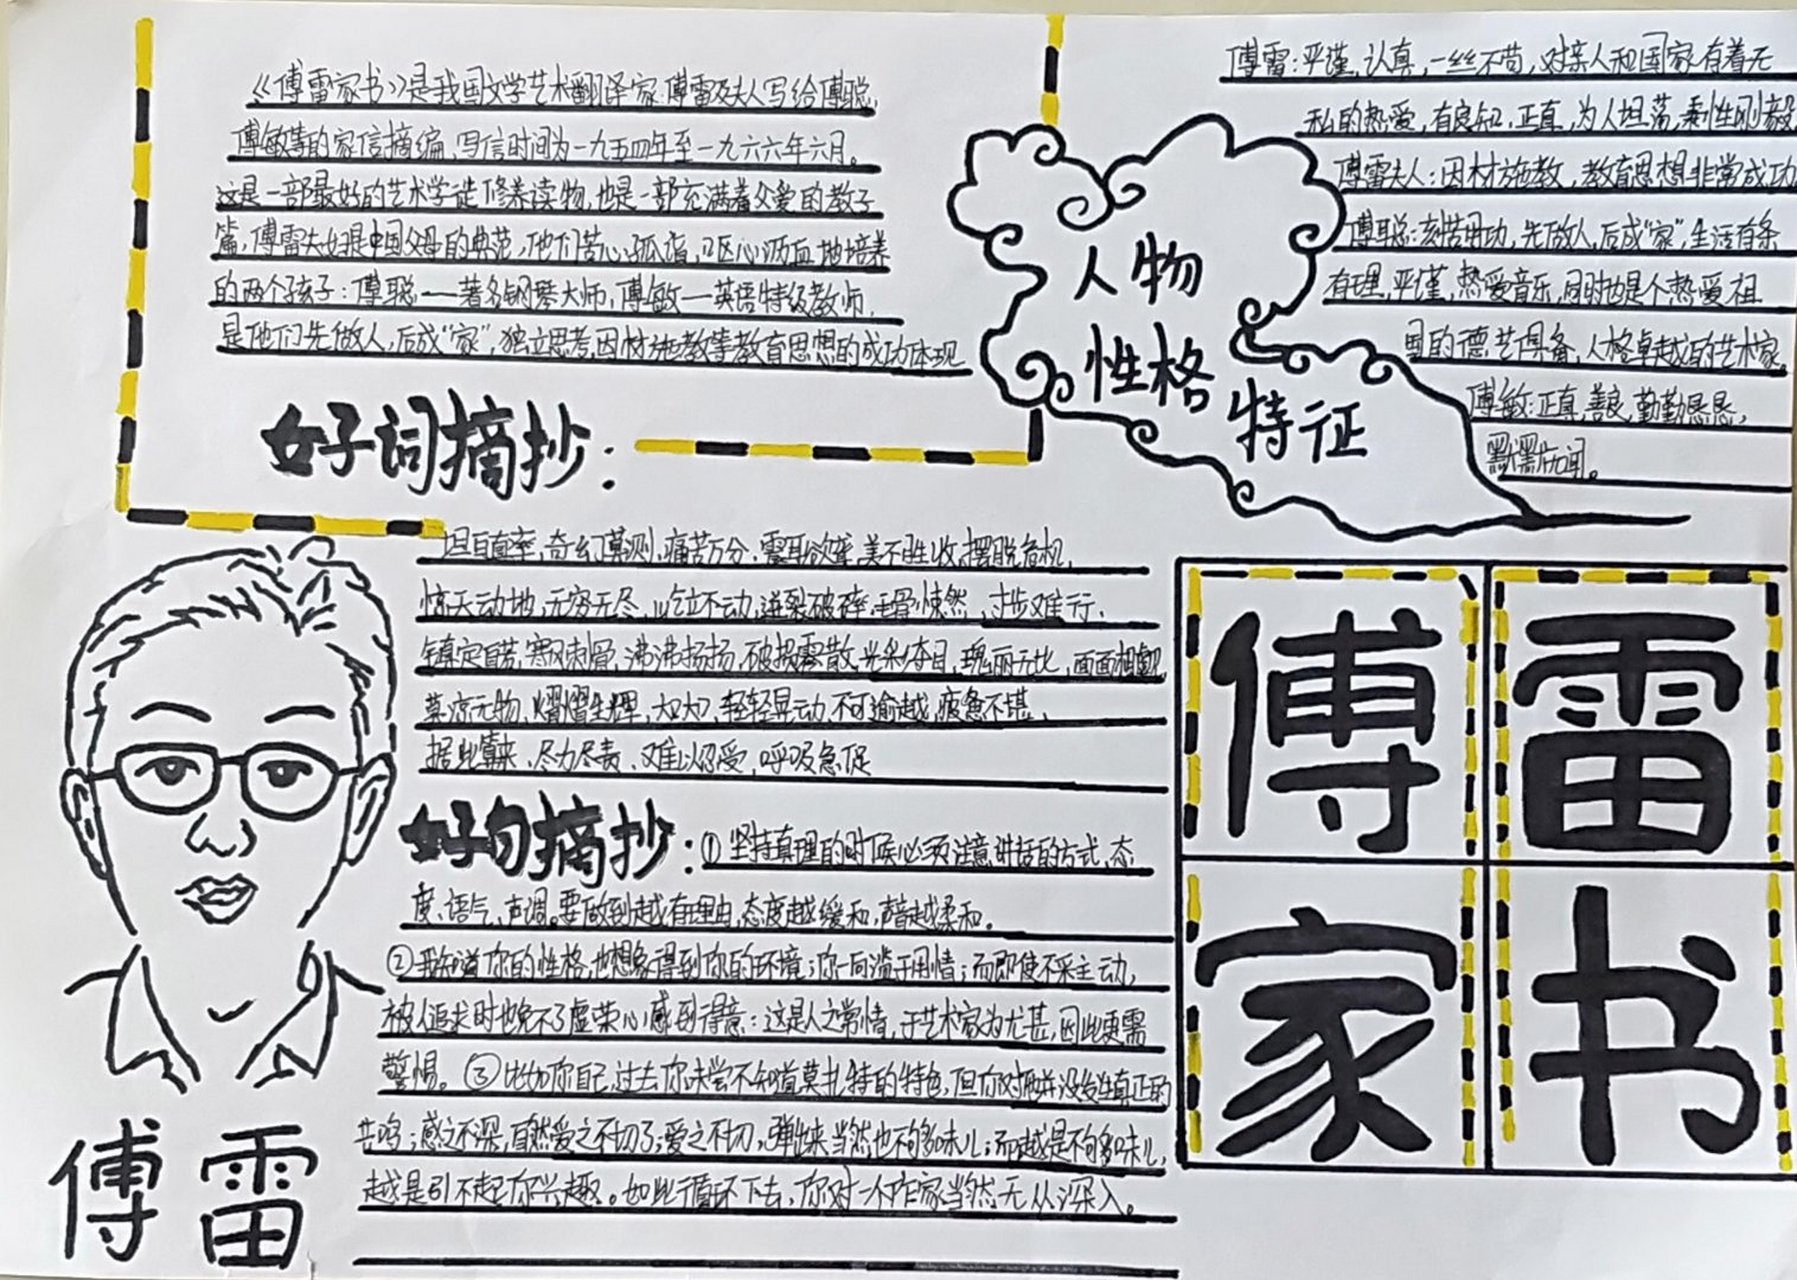 《傅雷家书》是我国文学艺术翻译家傅雷及夫人写给傅聪,
傅敏等的家信摘编,写信时间为一九五四年至一九六六年六月。
这是一部最好的艺术学徒修养读物,也是一部充满着父爱的教子
篇,傅雷夫妇是中国父母的典范,他们苦心孤诣,呕心沥血地培养
的两个孩子:傅聪——著名钢琴大师,傅敏—英语特级教师,
是他们先做人,后成"家",独立思考,因材施教等教育思想的成功体现
人物
性格
特征
傅雷:严谨,认真,一丝不苟,对亲人和国家有着无
私的热爱,有良知,正直,为人坦荡,秉性刚毅
傅雷夫人:因材施教,教育思想非常成功
傅聪:刻苦用功,先做人,后成"家",生活有条
有理,严谨,热爱音乐,同时也是个热爱祖
国的德艺俱备,人格卓越的艺术家。
傅敏:正直,善良,勤勤恳恳,
默默
好子词摘抄:
坦白直率,奇幻莫测,痛苦万分,震耳欲聋,美不胜收,摆脱危机,
惊天动地,无穷无尽,屹立不动,迸裂破碎,毛骨悚然,寸步难行,
镇定自若,寒风刺骨,沸沸扬扬,破损零散,光彩夺目,瑰丽无比,面面相觑,
荒凉无物,熠熠生辉,大大,轻轻晃动,不可逾越,疲惫不堪,
据此算来,尽力尽责,难以忍受,呼吸急促
好子句摘抄:①坚持真理的时候必须注意讲话的方式,态
度,语气,声调。要做到越有理由,态度越缓和,声音越柔和。
②我知道你的性格,也想象得到你的环境;你一向滥于用情;而即使不采主动,
被人追求时也免不了虚荣心感到得意:这是人之常情,于艺术家为尤甚,因此更需
警惕。③比如你自己,过去你未尝不知道莫扎特的特色,但你对他并没发生真正的
共鸣;感之不深,自然爱之不切了;爱之不切,弹出来当然也不够味儿;而越是不够味儿,
越是引不起你兴趣。如此循环下去,你对一个作家当然无从深入。
傅雷
家书
傅雷